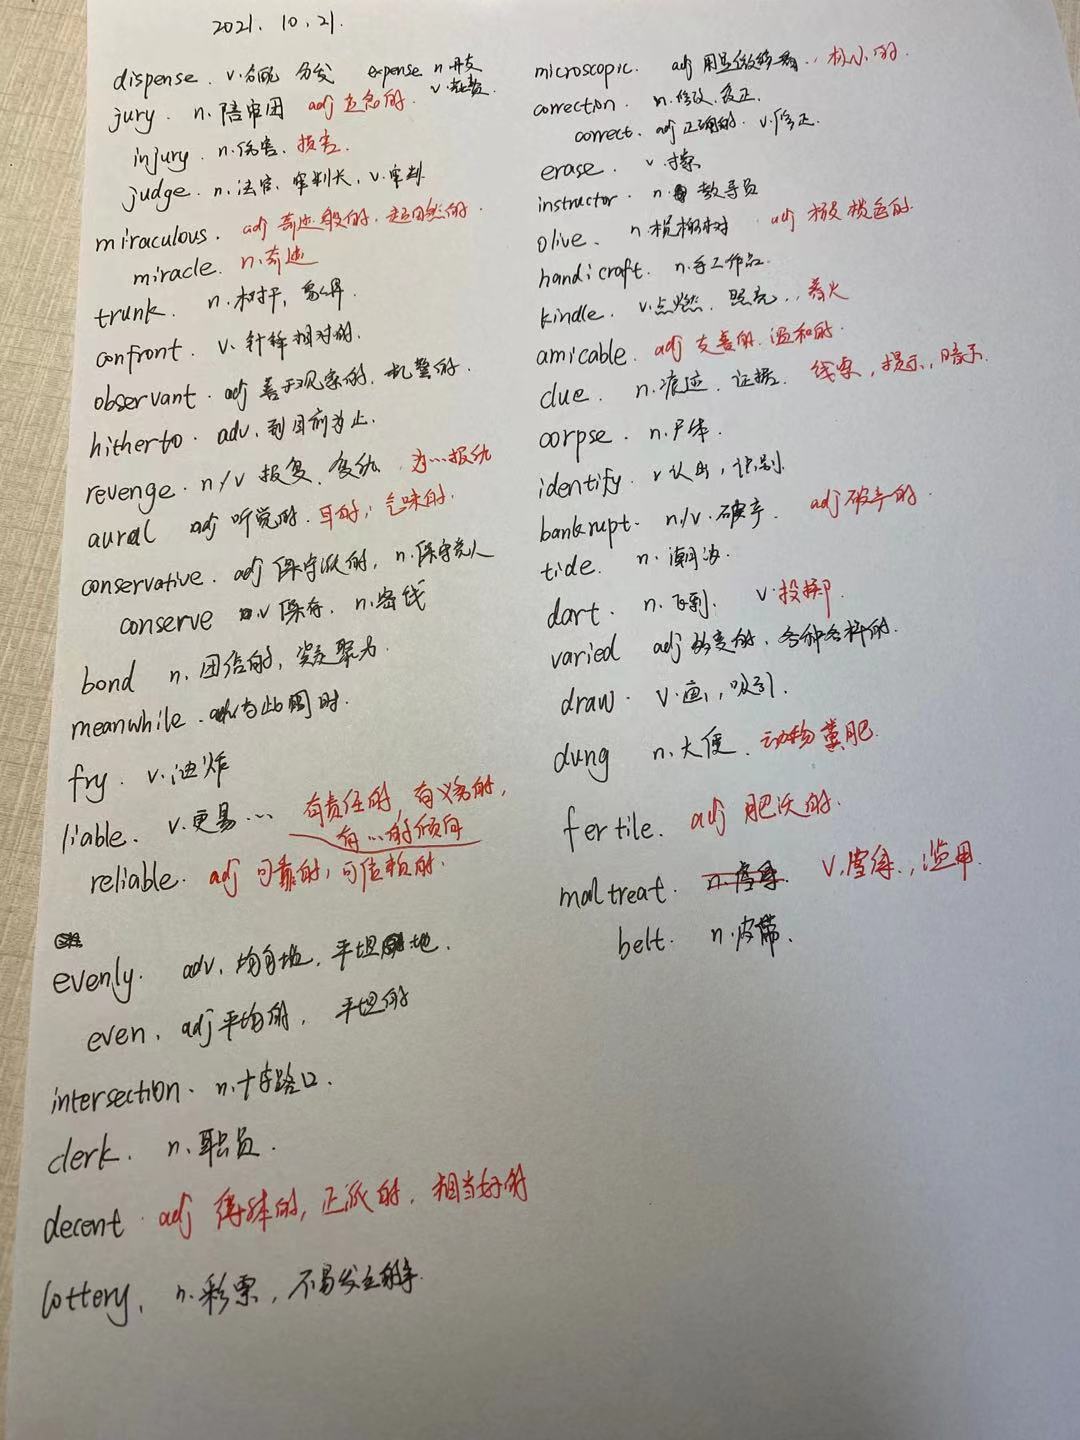 2021. 10. 21.
dispense. v.分配 分发 expense n.开支
v.
jury. n.陪审团 adj 应急的.
injury. n.伤害、损害.
judge. n.法官、审判长, v.审判
miraculous. adj 奇迹般的. 超自然的.
miracle. n.奇迹
trunk. n.树干,
confront. v. 针锋相对的.
observant. adj 善于观察的, 机警的.
hitherto. adv. 到目前为止.
revenge. n/v 报复、复仇. 为…报仇
aural adj 听觉的. 耳的; 气味的.
conservative. adj 保守派的, n.保守党人
conserve v 保存. n.
bond n. 团结的,
meanwhile. 与此同时.
fry. v.油炸
liable. v.更易… 有责任的, 有义务的,
有…的倾向
reliable. adj 可靠的, 可信赖的.
evenly. adv. 均匀地, 平坦地.
even. adj 平均的, 平坦的
intersection. n.十字路口.
clerk. n.职员.
decent. adj 得体的, 正派的, 相当好的
lottery. n.彩票, 不易发生
microscopic. adj 用显微镜, 极小的.
correction. n.修改、改正.
correct. adj 正确的. v.修正.
erase. v.擦
instructor. n. 教导员
olive. n.橄榄树 adj 橄榄色的.
handicraft. n.手工作品.
kindle. v.点燃、照亮,
amicable. adj 友善的. 温和的.
clue. n.痕迹、证据. 线索, 提示, 暗示.
corpse. n.尸体.
identify. v 认出, 识别.
bankrupt. n/v.破产. adj破产的.
tide. n.潮汐.
dart. n. v.投掷.
varied adj 多变的、各种各样的.
draw. v.画, 吸引.
dung n.大便. 动物粪肥.
fertile. adj 肥沃的.
maltreat. n.虐待. v.虐待, 滥用.
belt. n.皮带.